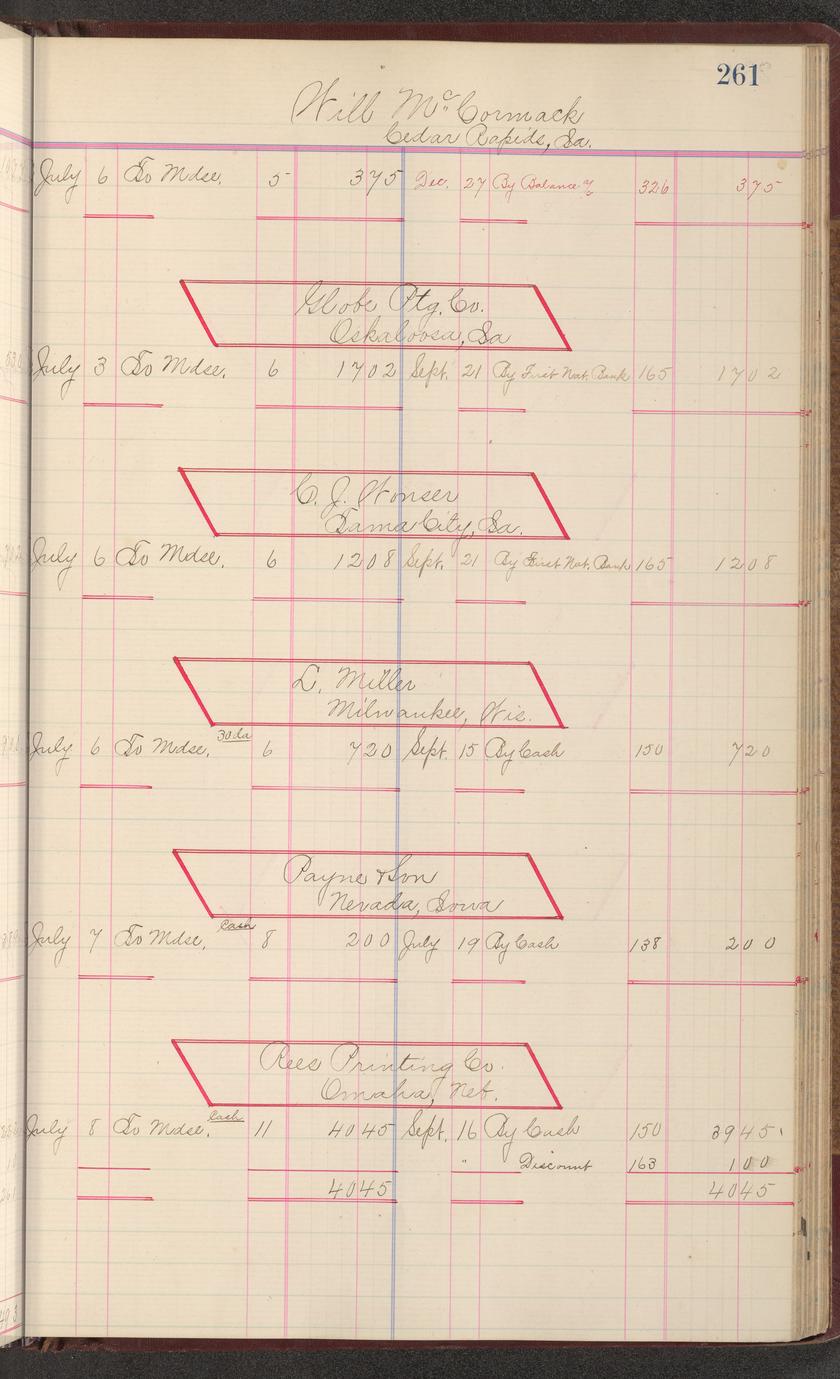 261
Will McCormack
Cedar Rapids, Ia.
July 6 To Mdse. 5 375 Dec. 27 By Balance 326 375
Globe Ptg. Co.
Oskaloosa, Ia
July 3 To Mdse. 6 1702 Sept. 21 By First Nat. Bank 165 1702
C. J. Wonser
Tama City, Ia.
July 6 To Mdse. 6 1208 Sept. 21 By First Nat. Bank 165 1208
L. Miller
Milwaukee, Wis.
July 6 To Mdse. 30 da 6 720 Sept. 15 By Cash 150 720
Payne & Son
Nevada, Iowa
July 7 To Mdse. Cash 8 200 July 19 By Cash 138 200
Rees Printing Co.
Omaha, Neb.
July 8 To Mdse. Cash 11 4045 Sept. 16 By Cash 150 3945
" Discount 163 100
4045 4045